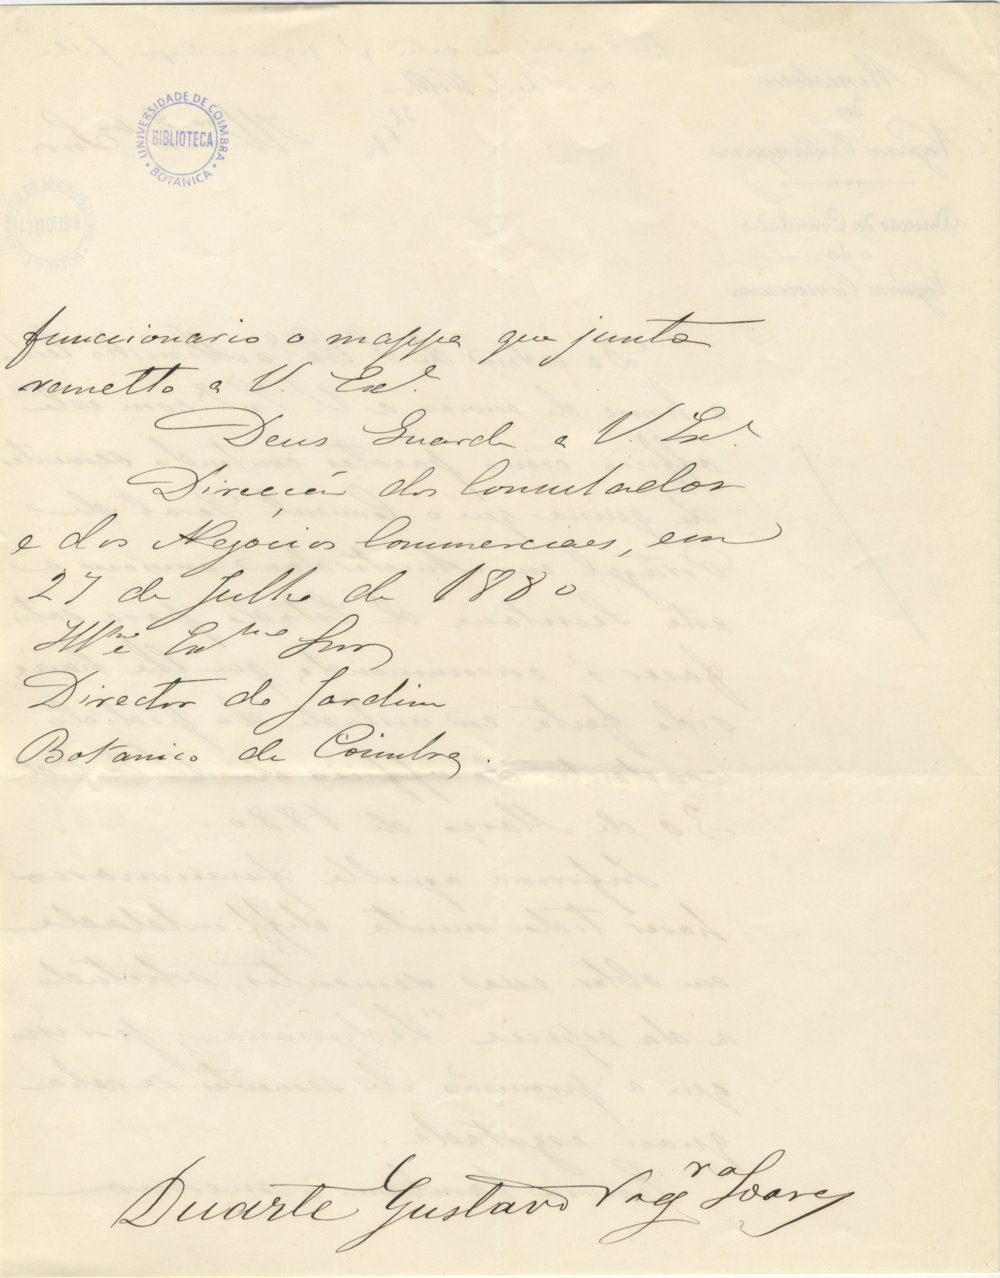 UNIVERSIDADE DE COIMBRA
BIBLIOTECA
BOTANICA
funccionario o mappa que junto
remetto a V. Exª.
Deus Guarde a V. Exª.
Direcção dos Consulados
e dos Negocios Commerciaes, em
27 de Julho de 1880
Illmo e Exmo Snr
Director do Jardim
Botanico de Coimbra.
Duarte Gustavo Nogra Soares